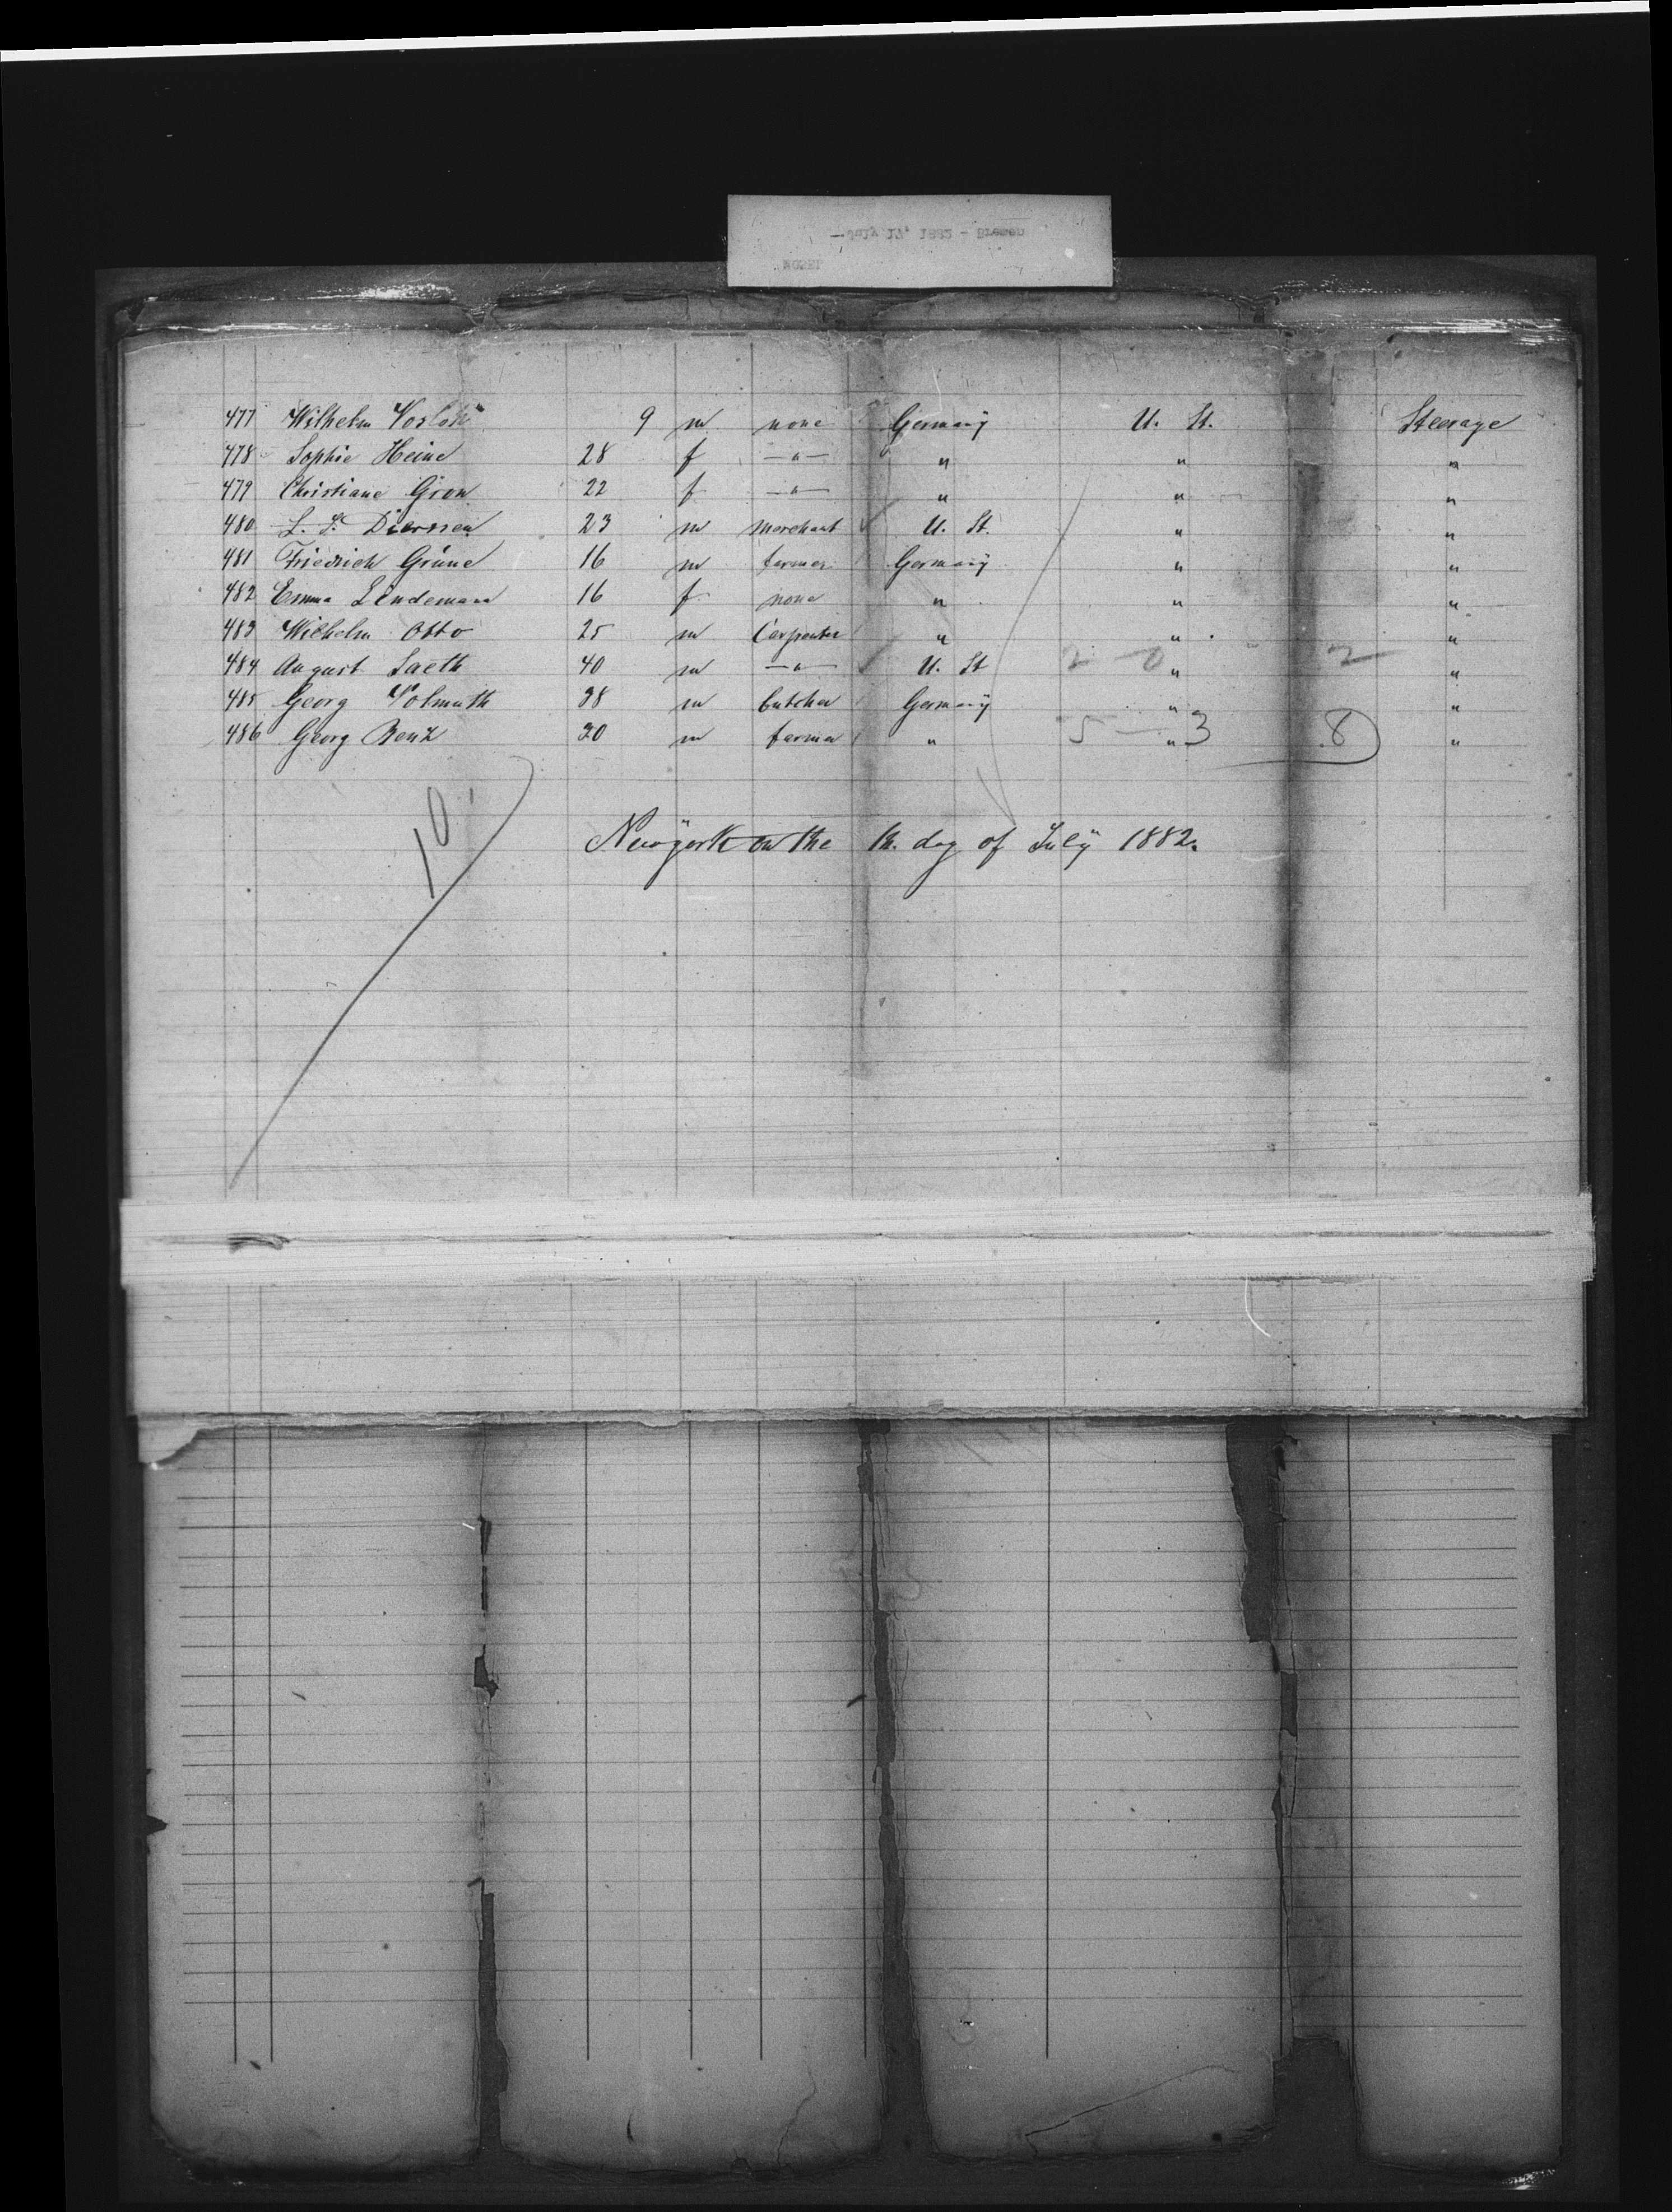 — July 17, 1882 - Bremen
MOSEL
477 Wilhelm 9 m none Germany U. St. Steerage
478 Sophie Heine 28 f —"— " " "
479 Christiane Gron 22 f —"— " " "
480 L. S. Dierssen 23 m merchant U. St. " "
481 Friedrich Grüne 16 m farmer Germany " "
482 Emma Lindemann 16 f none " " "
483 Wilhelm Otto 25 m Carpenter " " "
484 August Saeth 40 m —"— U. St 2 - 0 " 2 "
485 Georg Volmuth 38 m butcher Germany " "
486 Georg Benz 20 m farmer " 5 — " 3 8 "
10
Newyork on the day of July 1882.